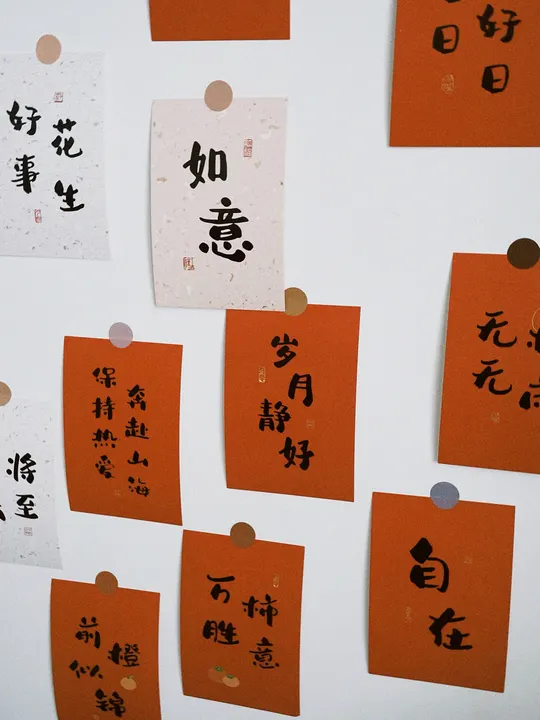 日
好日
好事
花生
如意
无
无
岁月
静好
保持热爱
奔赴山海
将至
自在
万柿
胜意
前橙
似锦